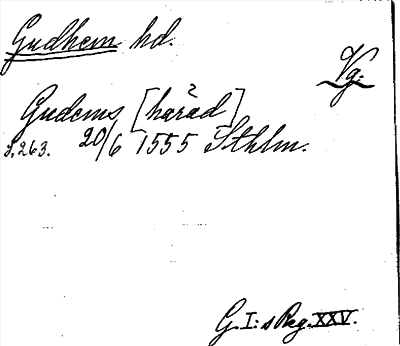 Gudhem hd.
Vg.
Gudems [härad]
s. 263. 20/6 1555 Sthlm.
G. I:s Reg. XXV.